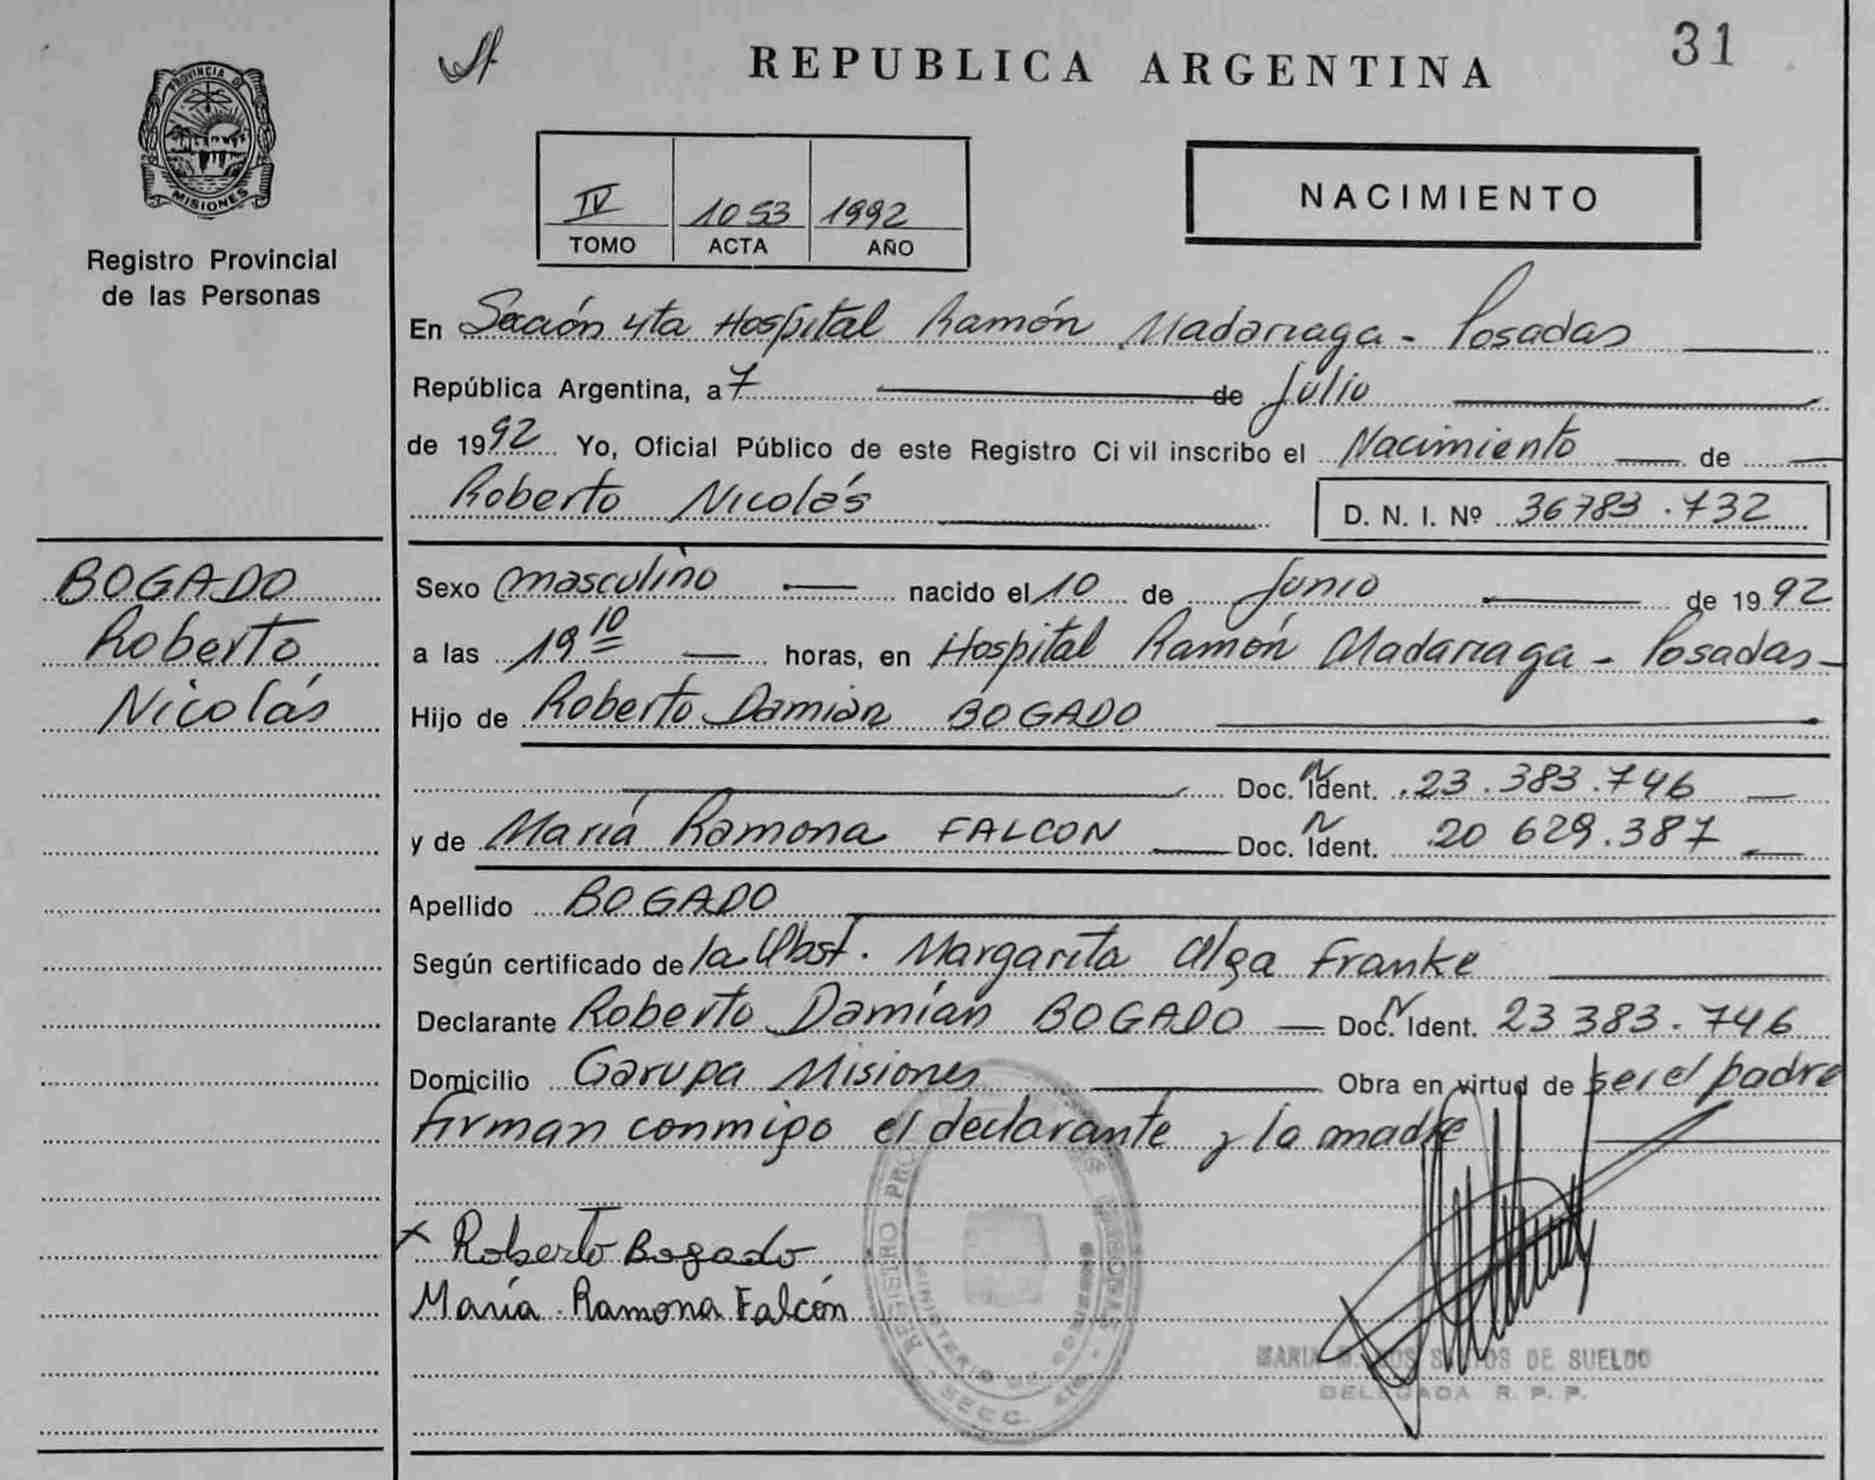 31
REPUBLICA ARGENTINA
PROVINCIA DE
MISIONES
Registro Provincial
de las Personas
IV 1053 1992
TOMO ACTA AÑO
NACIMIENTO
En Sección 4ta Hospital Ramón Madariaga - Posadas
República Argentina, a 7 de Julio
de 1992 Yo, Oficial Público de este Registro Civil inscribo el Nacimiento de
Roberto Nicolás D. N. I. Nº 36783.732
BOGADO
Roberto
Nicolás
Sexo masculino nacido el 10 de Junio de 1992
a las 19 10 horas, en Hospital Ramón Madariaga - Posadas-
Hijo de Roberto Damián BOGADO
Doc. N Ident. 23.383.746
y de María Ramona FALCON Doc. N Ident. 20 629.387
Apellido BOGADO
Según certificado de la Obst. Margarita Olga Franke
Declarante Roberto Damían BOGADO - Doc. N Ident. 23 383.746
Domicilio Garupa Misiones Obra en virtud de ser el padre
firman conmigo el declarante y la madre
x Roberto Bogado
María Ramona Falcón
MARIA SANTOS DE SUELDO
DELEGADA R. P. P.